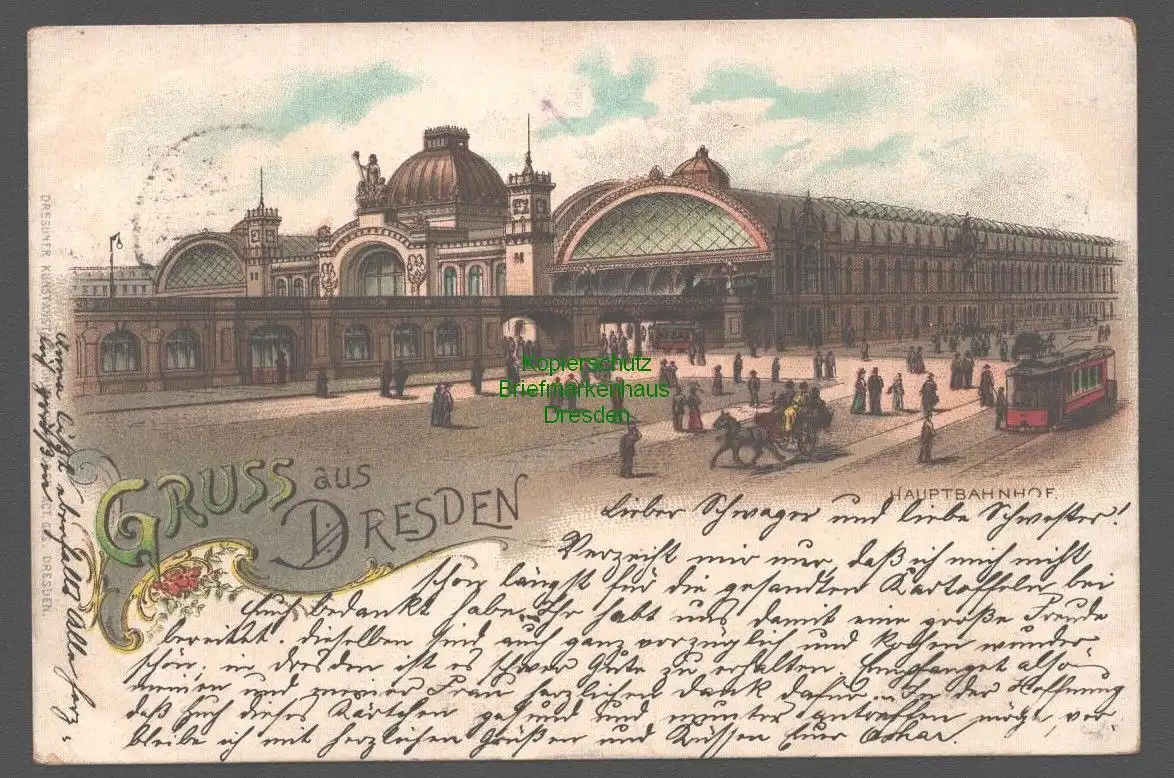 GRUSS aus
DRESDEN
HAUPTBAHNHOF.
Kopierschutz
Briefmarkenhaus
Dresden
Lieber Schwager und liebe Schwester!
Verzeiht mir nur, daß ich mich nicht
schon längst für die gesandten Kartoffeln bei
Euch bedankt habe. Ihr habt uns damit eine große Freude
bereitet. dieselben sind auch ganz vorzüglich und kochen wunder-
schön; in Dresden ist es schwer Gute zu erhalten. Empfanget also
meinen und meiner Frau herzlichen Dank dafür. In der Hoffnung
daß Euch dieses Kärtchen gesund und munter antreffen möge, ver-
bleibe ich mit herzlichen Grüßen und Küssen Euer Oskar.
Anna läßt ebenfalls Alle herz-
lich grüßen
DRESDNER
DRESDEN.